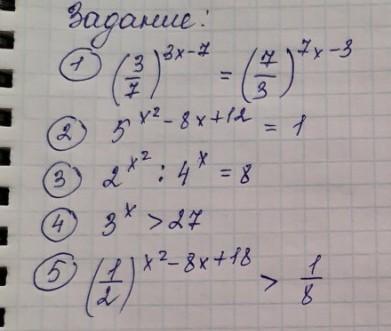 Задание:
① (3/7)^(3x-7) = (7/3)^(7x-3)
② 5^(x²-8x+12) = 1
③ 2^(x²) : 4^x = 8
④ 3^x > 27
⑤ (1/2)^(x²-8x+18) > 1/8